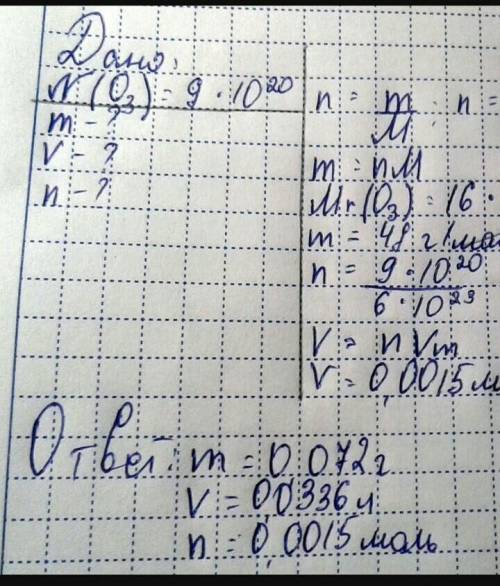 Дано:
N(O₃) = 9 · 10²⁰
m - ?
V - ?
n - ?
n = m/M; n =
m = nM
Mr(O₃) = 16 ·
m = 48 г/мол
n = 9 · 10²⁰ / 6 · 10²³
V = n Vm
V = 0,0015 м
Ответ: m = 0,072 г
V = 0,0336 л
n = 0,0015 моль